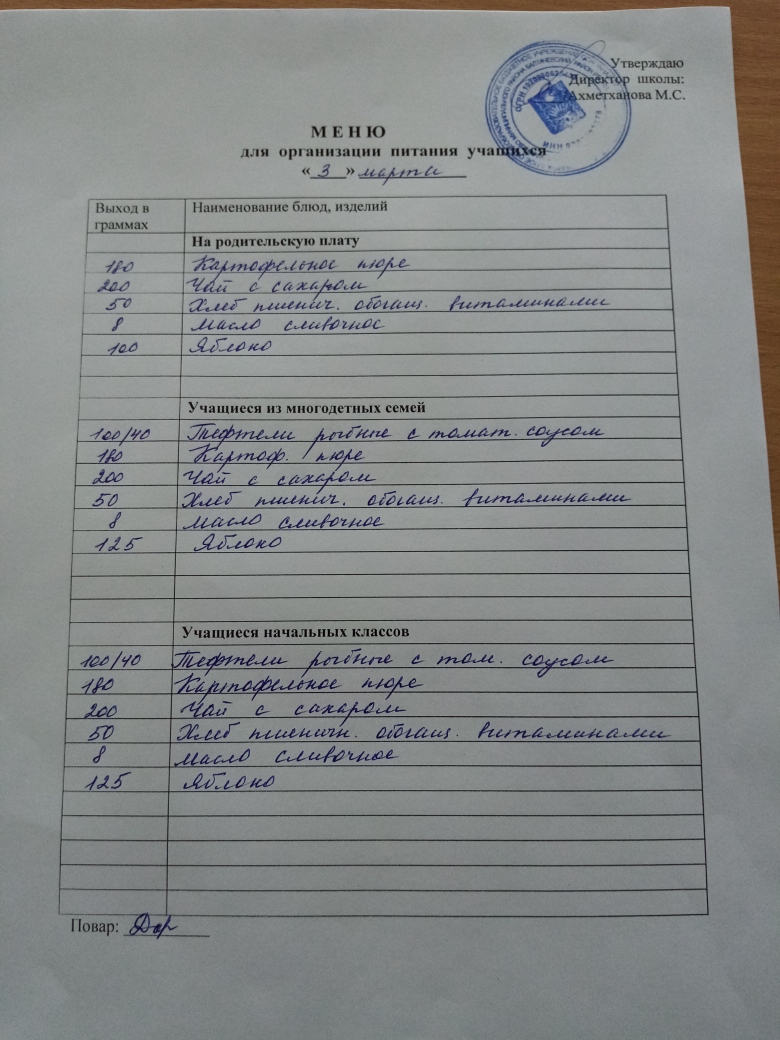 Утверждаю
Директор школы:
Ахметханова М.С.
М Е Н Ю
для организации питания учащихся
« 3 » марта
Выход в граммах Наименование блюд, изделий
На родительскую плату
180 Картофельное пюре
200 Чай с сахаром
50 Хлеб пшенич. обогащ. витаминами
8 Масло сливочное
100 Яблоко
Учащиеся из многодетных семей
100/40 Тефтели рыбные с томат. соусом
180 Картоф. пюре
200 Чай с сахаром
50 Хлеб пшенич. обогащ. витаминами
8 Масло сливочное
125 Яблоко
Учащиеся начальных классов
100/40 Тефтели рыбные с том. соусом
180 Картофельное пюре
200 Чай с сахаром
50 Хлеб пшеничн. обогащ. витаминами
8 Масло сливочное
125 Яблоко
Повар: